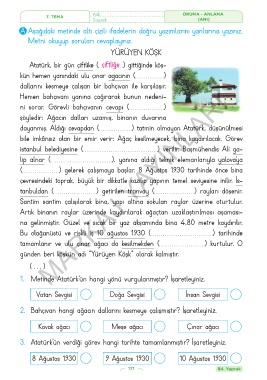 7. TEMA
Adı
Soyadı
OKUMA - ANLAMA
(ANI)
A Aşağıdaki metinde altı çizili ifadelerin doğru yazımlarını yanlarına yazınız.
Metni okuyup soruları cevaplayınız.
YÜRÜYEN KÖŞK
Atatürk, bir gün çiftlike ( çiftliğe ) gittiğinde köş-
kün hemen yanındaki ulu ağacının (
dallarını kesmeye çalışan bir bahçıvan ile karşılaşır.
Hemen bahçıvanı yanına çağırarak bunun nedeni-
ni sorar. Görevli bahçıvanın cevapı (
söyledir: Ağacın dalları uzamış, binanın duvarına
dayanmış. Aldığı cevapdan ( ) tatmin olmayan Atatürk, düşünülmesi
bile imkânsız olan bir emir verir: Ağaç kesilmeyecek, bina kaydırılacak. Görev
istanbul belediyesine ( ) verilir. Başmühendis Ali ga-
lip alnar ( ), yanına aldığı teknik elemanlarıyla yalovaya
( ) gelerek çalışmaya başlar. 8 Ağustos 1930 tarihinde önce bina
çevresindeki toprak, büyük bir dikkatle kazılıp yapının temel seviyesine inilir. İs-
tanbuldan ( ) getirilen tramvay ( ) rayları döşenir.
Santim santim çalışılarak bina, yapı altına sokulan raylar üzerine oturtulur.
Artık binanın raylar üzerinde kaydırılarak ağaçtan uzaklaştırılması aşaması-
na gelinmiştir. Güzel ve sıcak bir yaz akşamında bina 4,80 metre kaydırılır.
Bu olağanüstü ve riskli iş 10 ağustos 1930 ( ) tarihinde
tamamlanır ve ulu çınar ağacı da kesilmekden ( ) kurtulur. O
günden beri köşkün adı "Yürüyen Köşk" olarak kalmıştır.
(...)
1. Metinde Atatürk'ün hangi yönü vurgulanmıştır? İşaretleyiniz.
Vatan Sevgisi
Doğa Sevgisi
İnsan Sevgisi
2. Bahçıvan hangi ağacın dallarını kesmeye çalışmıştır? İşaretleyiniz.
Kavak ağacı
Meşe ağacı
Çınar ağacı
3. Atatürk'ün verdiği görev hangi tarihte tamamlanmıştır? İşaretleyiniz.
8 Ağustos 1930
9 Ağustos 1930
10 Ağustos 1930
171
84. Yaprak